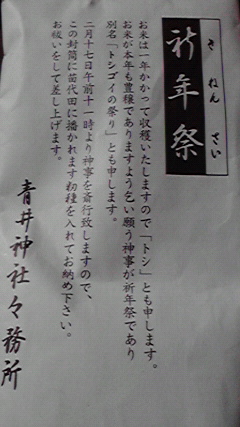 きねんさい
祈年祭
お米は一年かかって収穫いたしますので「トシ」とも申します。
お米が本年も豊穣でありますよう乞い願う神事が祈年祭であり
別名「トシゴイの祭り」とも申します。
二月十七日午前十一時より神事を斎行致しますので、
この封筒に苗代田に播かれます籾種を入れてお納め下さい。
お祓いをして差し上げます。
青井神社々務所